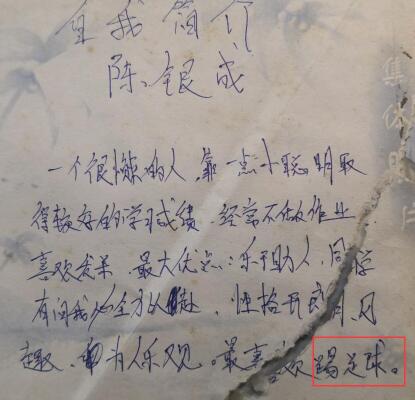 自我简介
陈银成
一个很懒的人,靠一点小聪明取
得较好的学习成绩.经常不做作业.
喜欢发呆.最大优点:乐于助人,同学
有问我必全力以赴,性格开朗
趣、为人乐观。最喜欢踢足球。
集体照片